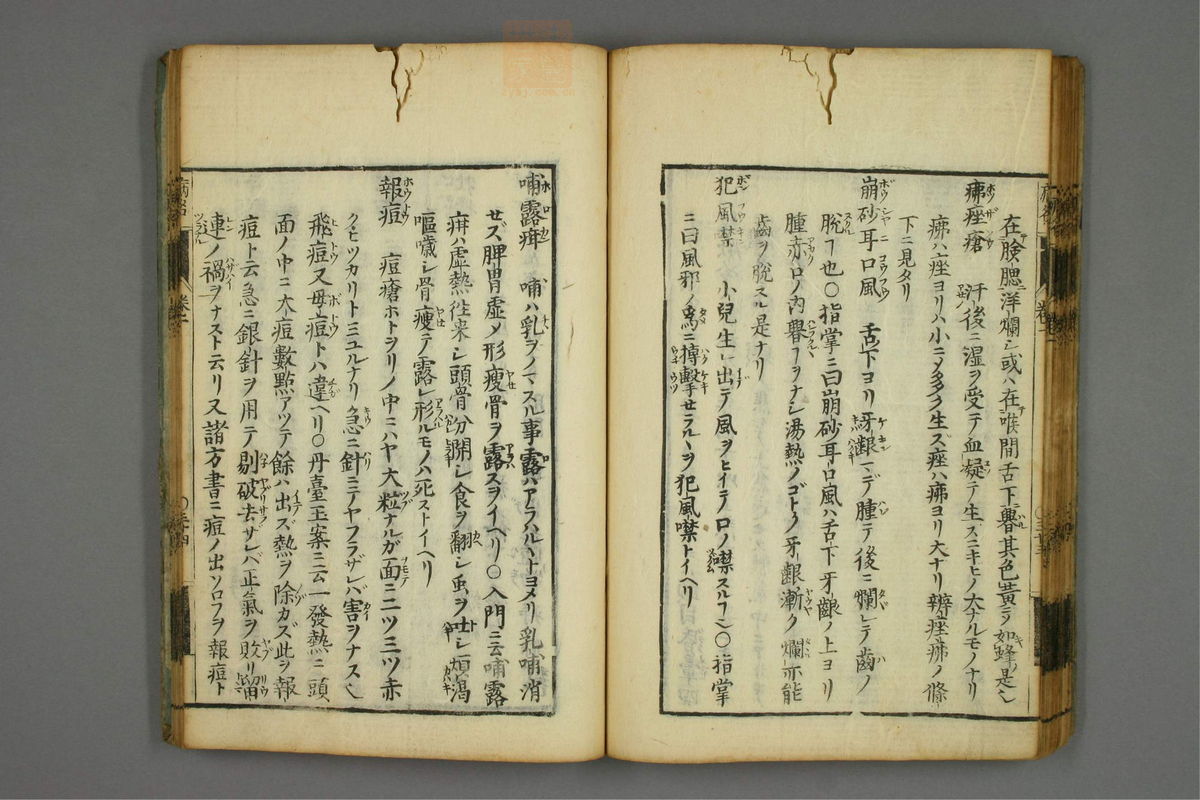 在腮腮洋爛シ或ハ在喉間舌下其色黄ラ如蜂ノ是レ
疿痤瘡 汗後ニ湿ヲ受テ血凝テ生スニキビノ大ナルモノナリ
疿ハ痤ヨリハ小ニノ多多ク生ズ痤ハ疿ヨリ大ナリ辨痤疿ノ條
下ニ見タリ
崩砂耳口風 舌下ヨリ牙齦マデ腫テ後ニ爛レテ齒ノ
脱フ也〇指掌ニ曰崩砂耳口風ハ舌下牙齦ノ上ヨリ
腫赤口ノ内フヲナシ湯熱ノゴトク牙齦漸ク爛亦能
齒ヲ脱スル是ナリ
犯風噤 小兒生レ出テ風ヲヒイテ口ノ噤スルフ〇指掌
ニ曰風邪ノ為ニ搏撃セラルヽヲ犯風噤トイヘリ
哺露疳 哺ハ乳ヲノマスル事露ハアラハルヽトヨメリ乳哺消
セズ脾胃虚ノ形瘦骨ヲ露スヲイヘリ〇入門ニ云哺露
疳ハ虚熱往来シ頭骨分開シ食ヲ翻シ虫ヲ吐シ煩渇
嘔噦シ骨瘦テ露レ形ルモノハ死ストイヘリ
報痘 痘瘡ホトヲリノ中ニハヤ大粒ナルガ面ニ二ツ三ツ赤
クモツカリトミユルナリ急ニ針ミテヤフラザレバ害ヲナス
飛痘又母痘トハ違ヘリ〇丹臺玉案ニ云一發熱ニ頭
面ノ中ニ大痘數點アツテ餘ハ出ズ熱ヲ除カズ此ヲ報
痘ト云急ニ銀針ヲ用テ剔破去ザレバ正氣ヲ敗リ留
連ノ禍ヲナスト云リ又諸方書ニ痘ノ出ソロフヲ報痘ト